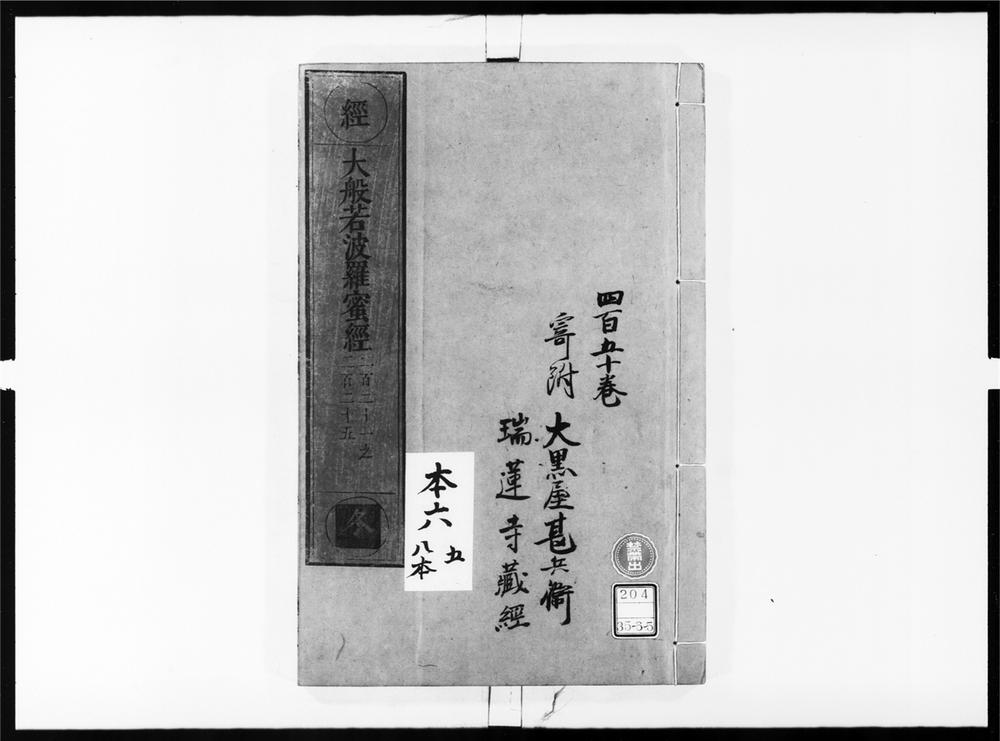 四百五十巻
寄附 大黒屋甚兵衛
瑞蓮寺藏經
經
大般若波羅蜜經
二百二十一之
二百二十五
冬
本六
五
八本
禁帯出
204
35-3-5